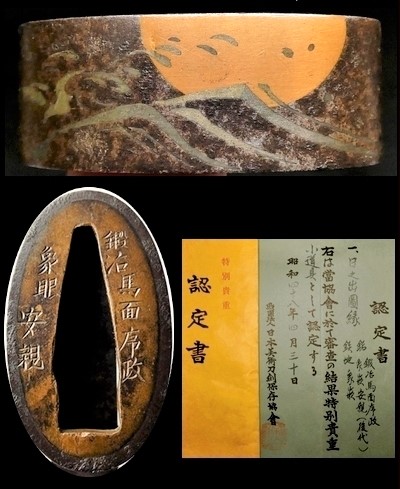 鍛冶馬面序政
象眼安親
特別貴重
認定書
認定書
一、日之出圖縁
銘 鍛冶馬面序政
象嵌安親(後代)
鉄地象嵌
右は當協會に於て審査の結果特別貴重
小道具として認定する
昭和四十八年四月三十日
財團法人日本美術刀剣保存協會